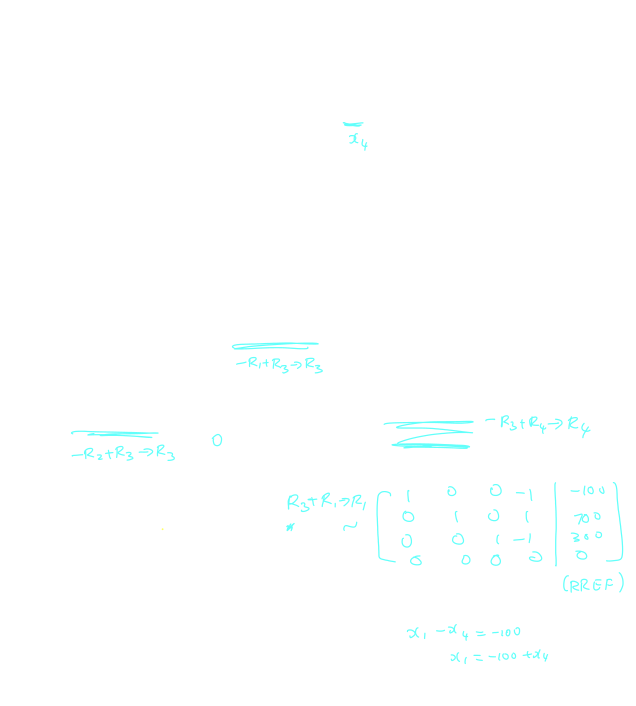 x₄
-R₁+R₃→R₃
-R₃+R₄→R₄
-R₂+R₃→R₃ 0
R₃+R₁→R₁
* ~
1 0 0 -1 | -100
0 1 0 1 | 700
0 0 1 -1 | 300
0 0 0 0 | 0
(RREF)
x₁ -x₄ = -100
x₁ = -100 +x₄